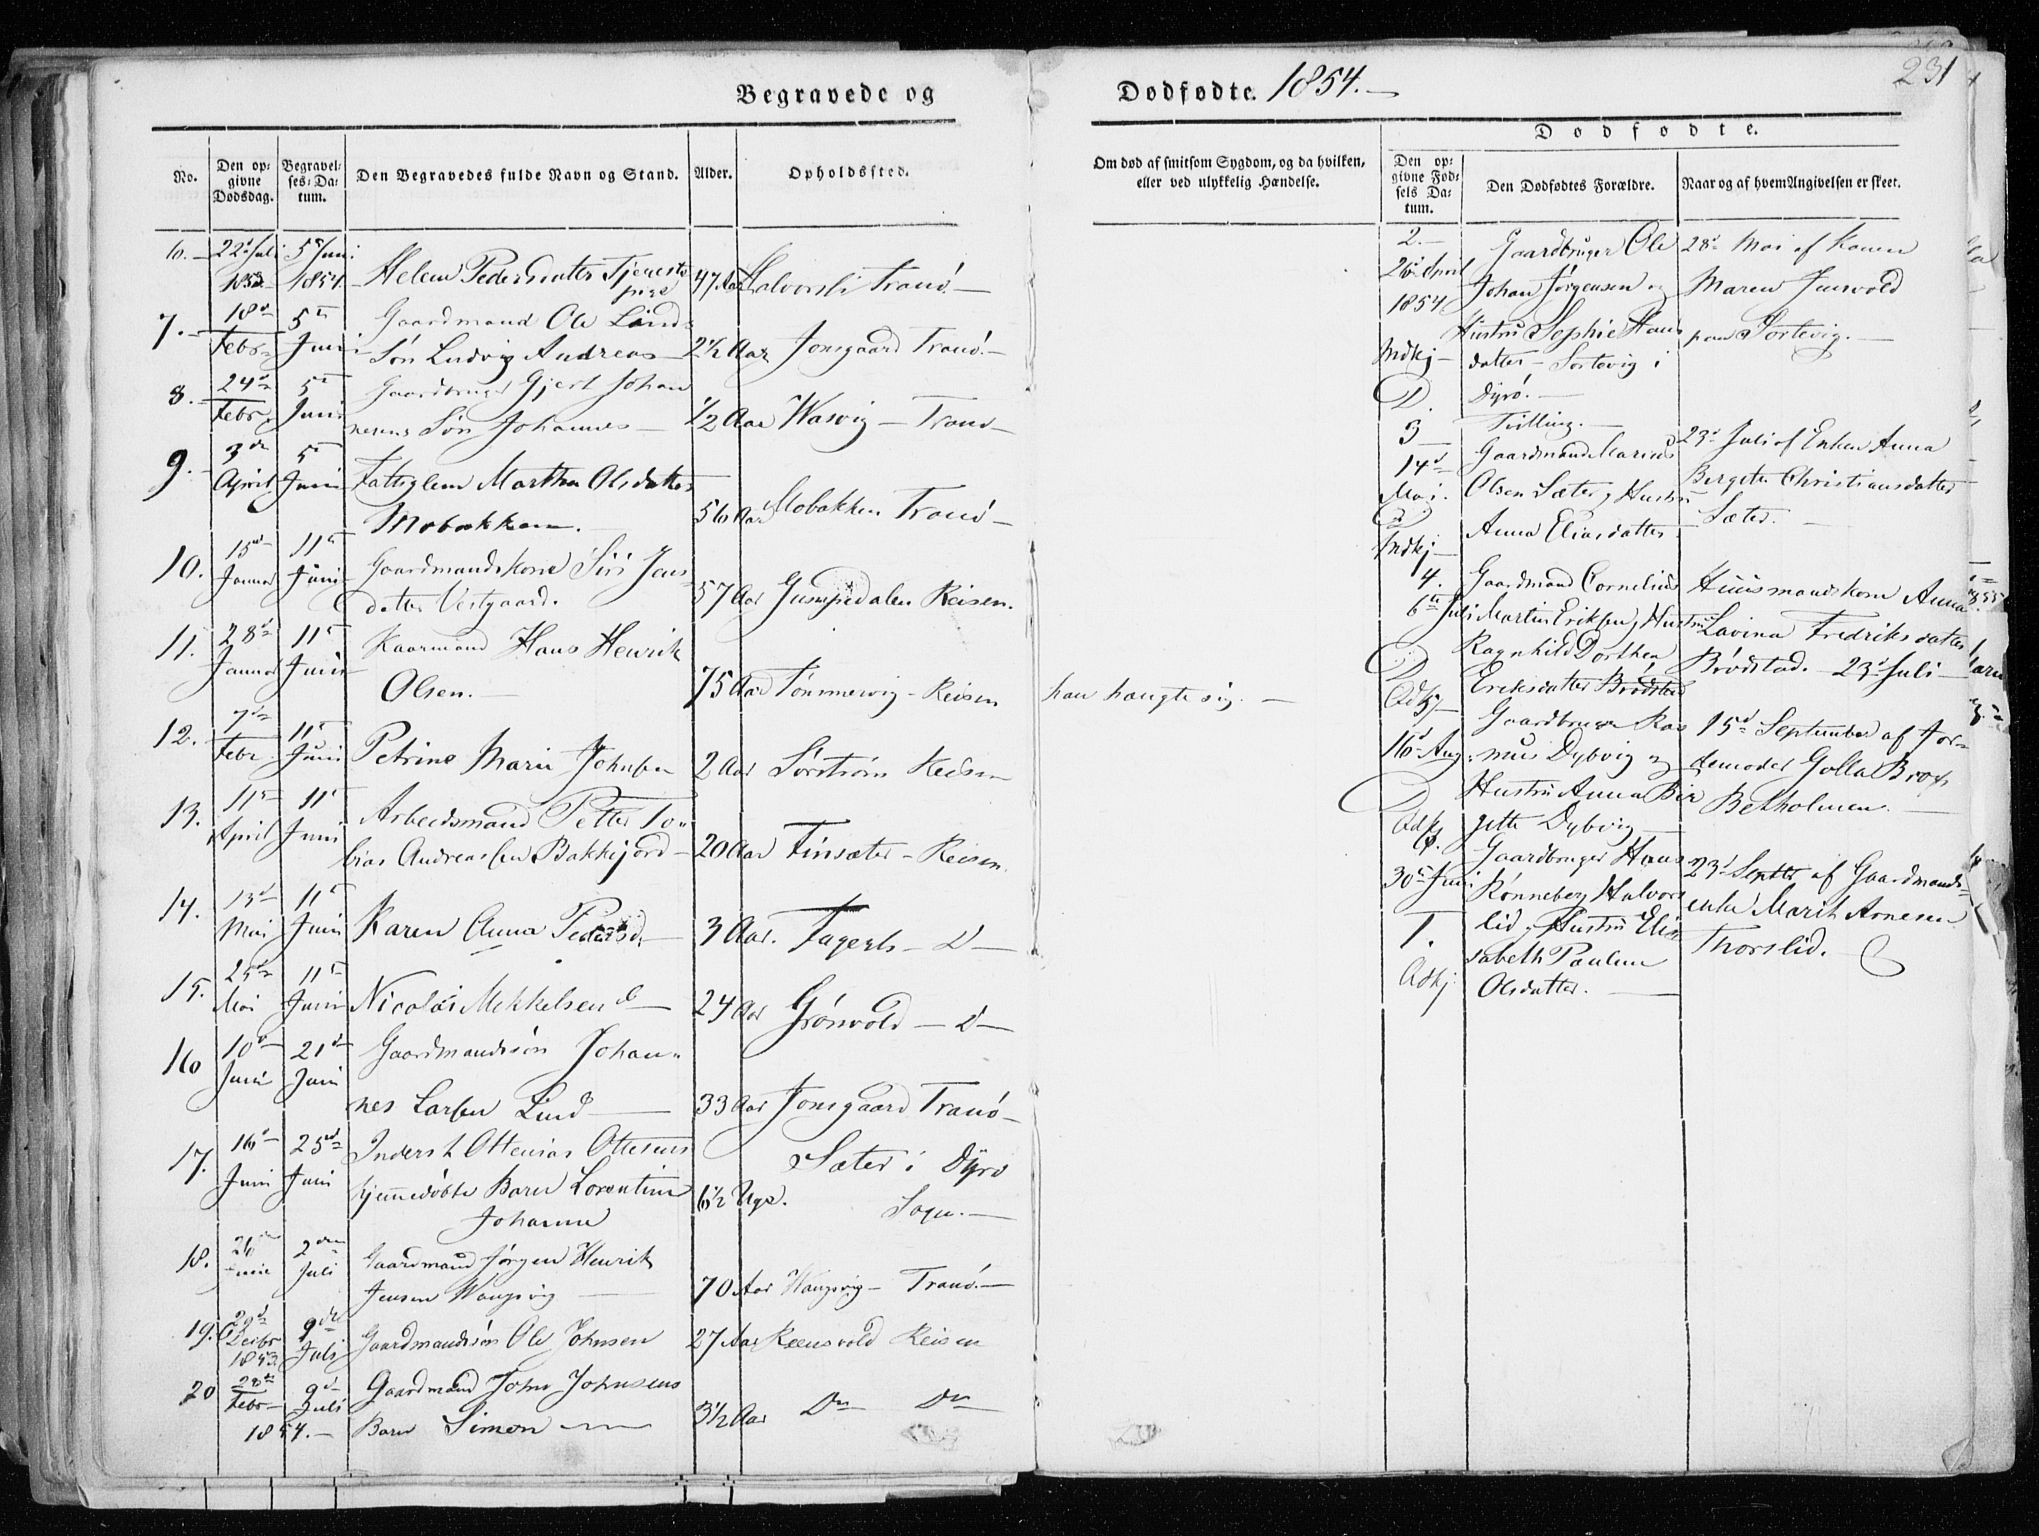 Begravede og
Dødfødte. 1854.
231
No.
Den op-
givne
Dødsdag.
Begravel-
ses-Da-
tum.
Den Begravedes fulde Navn og Stand.
Alder.
Opholdssted.
Om død af smitsom Sygdom, og da hvilken,
eller ved ulykkelig Hændelse.
Dødfødte.
Den op-
givne Fød-
sels Da-
tum.
Den Dødfødtes Forældre.
Naar og af hvem Angivelsen er skeet.
6. 22d Juli 5te Juni
1853 1854 Helene Pedersdatter Tjeneste
pige 47 Aar Halvorsli Tranø
7. 18de Febr 5te Juni Gaardmand Ole Linds
Søn Ludvig Andreas 2½ Aar Jonsgaard Tranø
8. 24de Febr 5te Juni Gaardbruger Gjert Johan
nesens Søn Johannes 1/2 Aar Wasvig Tranø
9. 3de April 5te Juni Fattiglem Martha Olsdatter
Mobakken 56 Aar Mobakken Tranø
10. 15de Januar 11te Juni Gaardmandskone Siri Jens
datter Vestgaard. 57 Aar Gumpedalen Reisen.
11. 28de Januar 11te Juni Kaarmand Hans Henrik
Olsen. 75 Aar Tømmervig Reisen han hængte sig.
12. 7de Febr. 11te Juni Petrine Marie Johnsen 2 Aar Sørstrøm Reisen
13. 11te April 11te Juni Arbeidsmand Petter To-
bias Andreassen Bakkejord 20 Aar Finsæter Reisen
14. 13de Mai 11te Juni Karen Anna Pedersd. 3 Aar. Fagerli D
15. 25de Mai 11te Juni Nicolai Mekkelsen 24 Aar Grønvold D
16 10de Juni 21de Juni Gaardmandssøn Johan-
nes Larsen Lind 33 Aar Jonsgaard Tranø
17. 16de Juni 25de Juni Inderst Ottenias Ottesens
hjemmedøbte Barn Lorentine
Johanne 6½ Uge. Sæter i Dyrø
Sogn.
18. 26de Juni 2den Juli Gaardmand Jørgen Henrik
Jensen Wangsvig 70 Aar Wangsvig Tranø
19. 29de Decbr 1853 9de Juli Gaardmandssøn Ole Johnsen 27 Aar Reisen
20 28de Febr 1854. 9de Juli Gaardmand John Johnsens
Barn Simon 3½ Aar Do Do
2.
26de April
1854
Indkj
D.
Gaardbruger Ole
Johan Jørgensen og
Hustru Sophie Hans
datter Sortevig i
Dyrø.
28de Mai af Konen
Maren Jensvold
paa Sortevig.
3
14de
Mai.
D
Indkj
Tvilling.
Gaardmand Marius
Olsen Sæter og Hustru
Anna Eliasdatter
23de Juli af Enken Anna
Bergite Christiansdatter
Sæter.
4.
6te Juli
D
Udkj
Gaardmand Cornelius
Martin Eriksen og Hustru
Ragnhild Dorthea
Eriksdatter Brødstad
Huusmandskone Anna
Lavina Fredriksdatter
Brødstad. 23de Juli
16de Aug
D
Udkj
Gaardbruger Ras
mus Dybvig og
Hustru Anna Bir
gitte Dybvig
15de September af Jor-
demoder Golla Brox
Bekholmen.
30te Juni
T.
Udkj
Gaardbruger Hans
Rønneberg Halvors
lid og Hustru Elisa
sabeth Pauline
Olsdatter.
23de Septbr af Gaardmands-
enke Marith Arnesen
Thorslid.